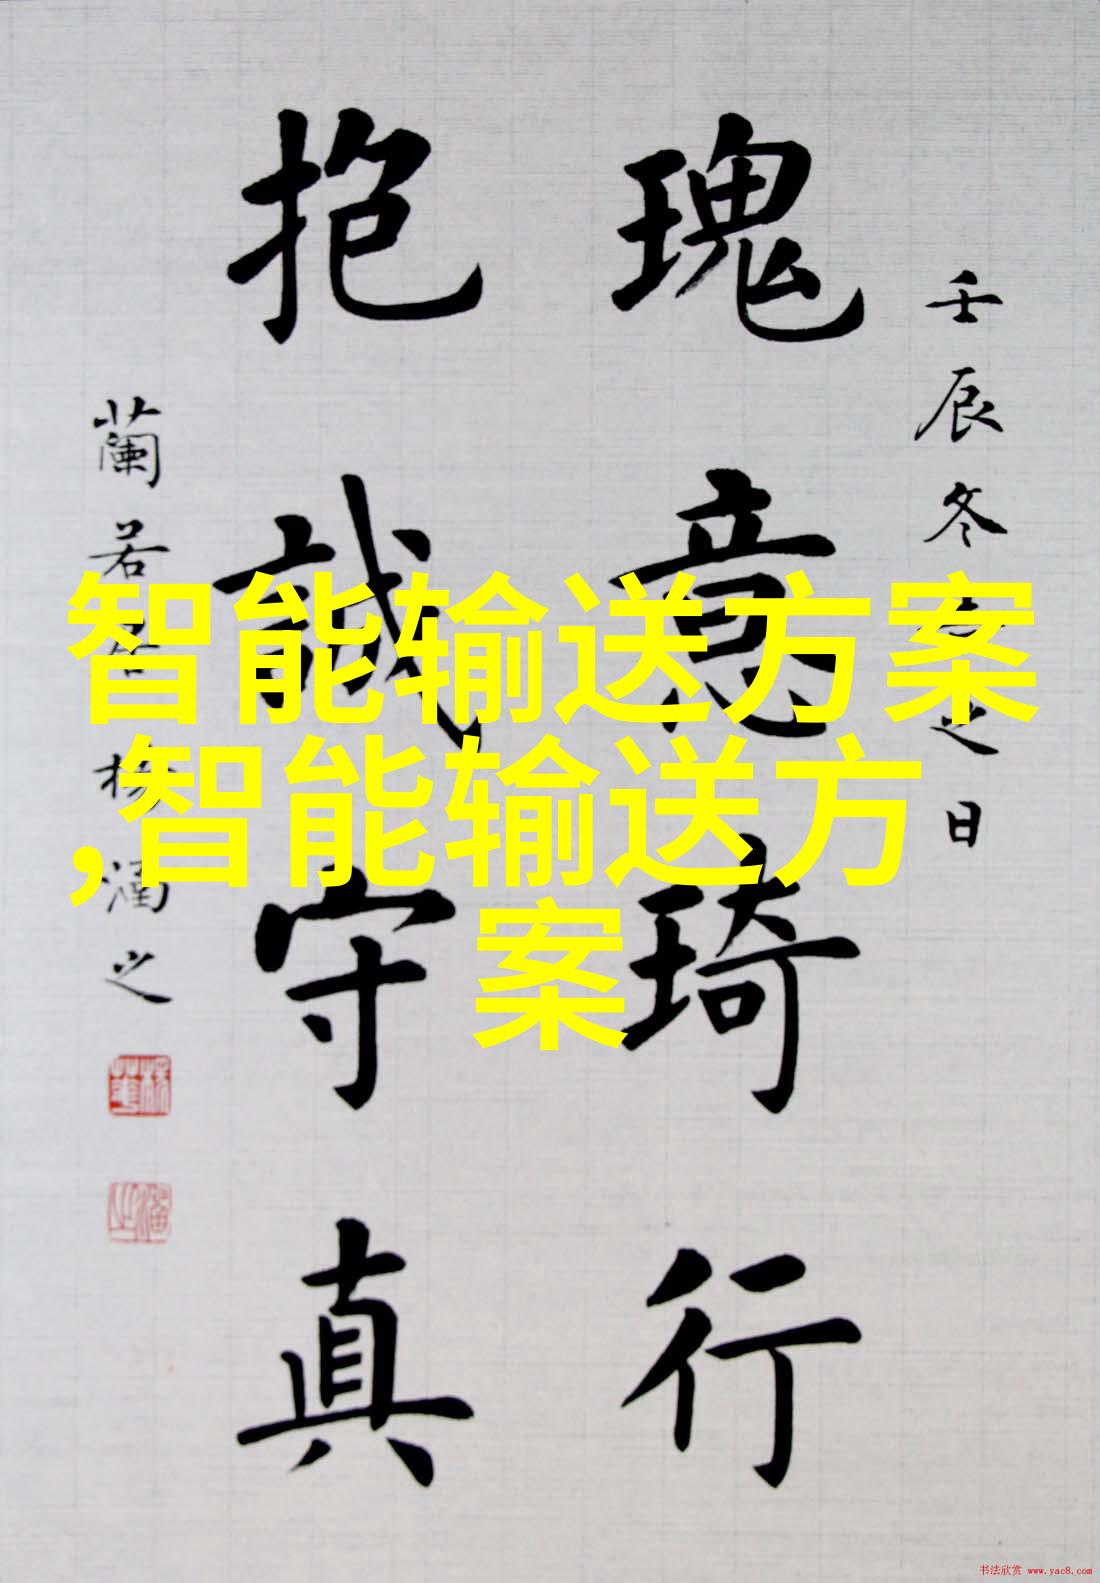 壬辰冬
之日
瑰意琦行
抱誠守真
蘭若
之
智能输送方案
,智能输送方
案
书法欣赏 www.yac8.com